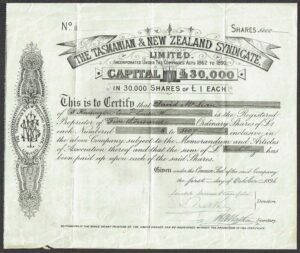 Nº 11 SHARES 5000
THE TASMANIAN & NEW ZEALAND SYNDICATE,
LIMITED.
INCORPORATED UNDER THE COMPANIES ACTS 1862 TO 1890.
CAPITAL £30,000
IN 30,000 SHARES OF £1 EACH
This is to Certify that David
of is the Registered
Proprietor of Five Thousand Ordinary Shares of £1
each Numbered to inclusive in
the above Company, subject to the Memorandum and Articles
of Association thereof and that the sum of £
has been paid up upon each of the said Shares.
Given under the Common Seal of the said Company
the first day of October 1896
Directors
Secretary